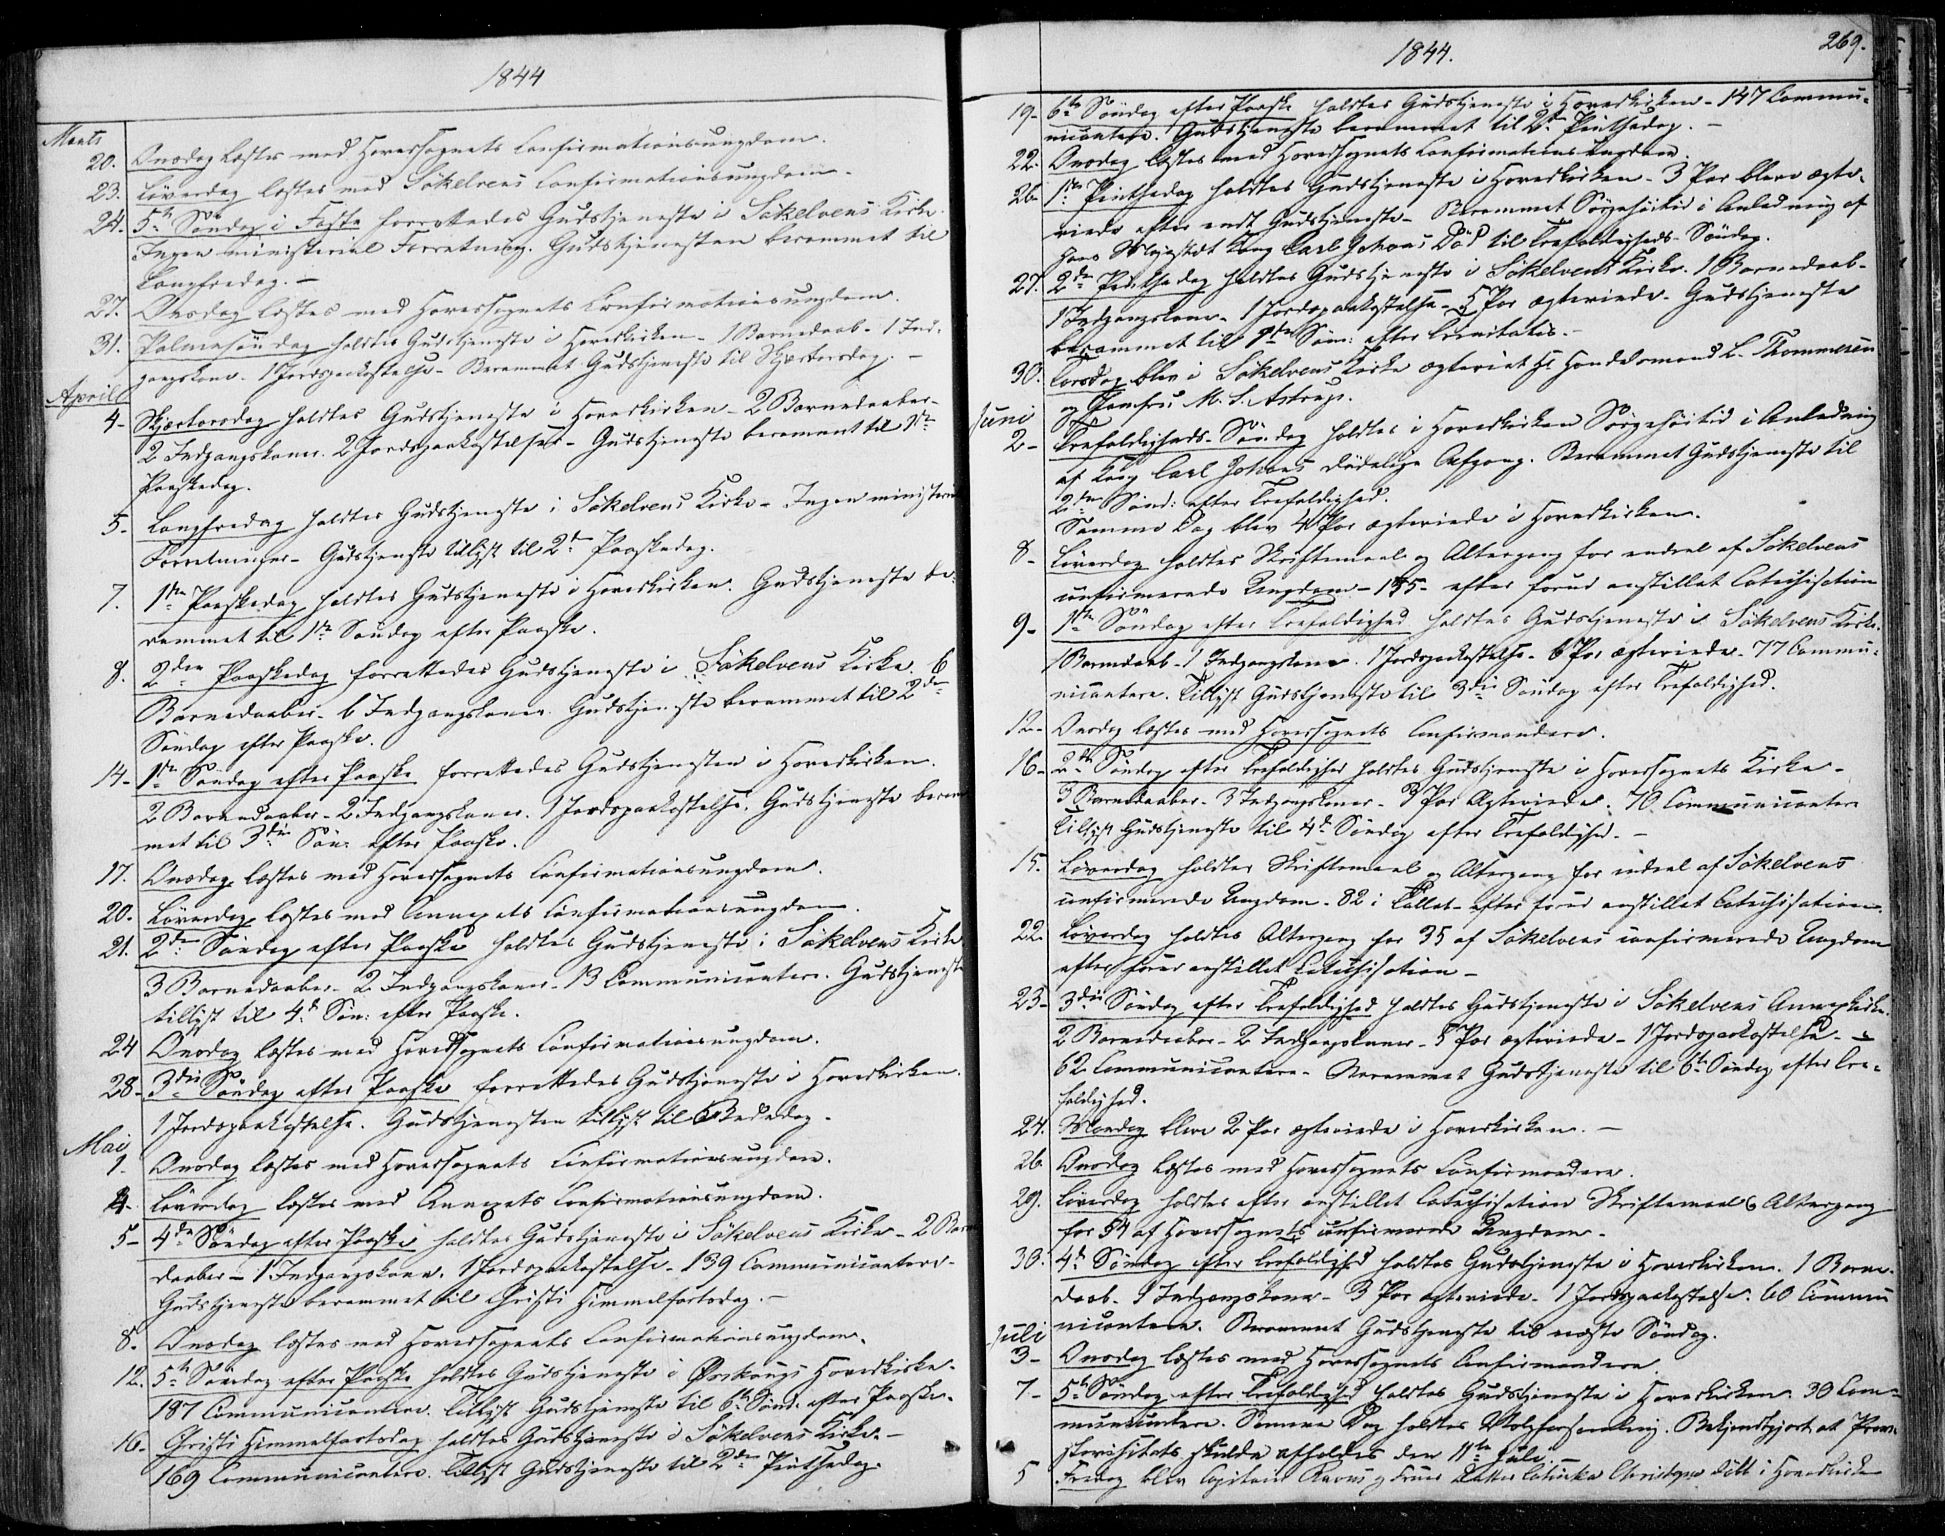 1844
Marts
20. Onsdag læstes med Hovedsognets Confirmationsungdom.
23. Løverdag læstes med Søkelvens Confirmationsungdom.
24. 5te Søndag i Faste forrettedes Gudstjeneste i Søkelvens Kirke.
Ingen ministerial Forretning. Gudstjenesten berammet til
Langfredag. –
27. Onsdag læstes med Hovedsognets Confirmationsungdom.
31. Palmesøndag holdtes Gudstjeneste i Hovedkirken – 1 Barnedaab – 1 Ind-
gangskone. 1 Jordspaakastelse – Berammet Gudstjeneste til Skjærtorsdag. –
April
4 – Skjærtorsdag holdtes Gudstjeneste i Hovedkirken – 2 Barnedaaber –
2 Indgangskoner. 2 Jordspaakastelser – Gudstjeneste berammet til 1ste
Paaskedag.
5 – Langfredag holdtes Gudstjeneste i Søkelvens Kirke – Ingen ministerial
Forretninger – Gudstjeneste tillyst til 2den Paaskedag.
7. 1ste Paaskedag holdtes Gudstjeneste i Hovedkirken. Gudstjeneste be-
rammet til 1ste Søndag efter Paaske.
8. 2den Paaskedag forrettedes Gudstjeneste i Søkelvens Kirke 6
Barnedaaber – 6 Indgangskoner. Gudstjeneste berammet til 2den
Søndag efter Paaske.
14 – 1ste Søndag efter Paaske forrettedes Gudstjenesten i Hovedkirken.
2 Barnedaaber – 2 Indgangskoner. 1 Jordspaakastelse. Gudstjeneste beram
met til 3die Søn: efter Paaske.
17. Onsdag læstes med Hovedsognets Confirmationsungdom.
20. Løverdag læstes med Annexets Confirmationsungdom.
21. 2den Søndag efter Paaske holdtes Gudstjeneste i Søkelvens Kirke
3 Barnedaaber – 2 Indgangskoner – 13 Communicantere. Gudstjeneste
tillyst til 4de Søn: efter Paaske.
24 Onsdag læstes med Hovedsognets Confirmationsungdom.
28 – 3die Søndag efter Paaske forrettedes Gudstjeneste i Hovedkirken.
1 Jordspaakastelse. Gudstjenesten tillyst til Bededag.
Mai
1. Onsdag læstes med Hovedsognets Confirmationsungdom.
4 – Løverdag læstes med Annexets Confirmationsungdom.
5 – 4de Søndag efter Paaske holdtes Gudstjeneste i Søkelvens Kirke – 2 Barne
daaber – 1 Indgangskone. 1 Jordspaakastelse – 139 Communicantere –
Gudstjeneste berammet til Christi Himmelfartsdag. –
8. Onsdag læstes med Hovedsognets Confirmationsungdom.
12. 5te Søndag efter Paaske holdtes Gudstjeneste i Ørskougs Hovedkirke –
187 Communicantere. Tillyst Gudstjeneste til 6te Sønd. efter Paaske.
16 – Christi Himmelfartsdag holdtes Gudstjeneste i Søkelvens Kirke. –
169 Communicantere. Tillyst Gudstjeneste til 2den Pintsedag.
1844.
269.
19 – 6te Søndag efter Paaske holdtes Gudstjeneste i Hovedkirken – 147 Commu-
nicantere. Gudstjeneste berammet til 2den Pintsedag. –
22. Onsdag læstes med Hovedsognets Confirmations Ungdom.
26 – 1ste Pintsedag holdtes Gudstjeneste i Hovedkirken – 3 Par bleve ægte-
viede efter endt Gudstjeneste – Berammet Sørgehøitid i Anledning af
Hans Majestæt Kong Carl Johans Død til Trefoldigheds-Søndag.
27. 2den Pintsedag holdtes Gudstjeneste i Søkelvens Kirke. 1 Barnedaab –
1 Indgangskone – 1 Jordspaakastelse – 5 Par ægteviede – Gudstjeneste
berammet til 1ste Søn: efter Trinitatis. –
30. Torsdag blev i Søkelvens Kirke ægteviet Hr Handelsmand L. Thommesen
og Jomfru M. S. Astrup.
Juni
2 – Trefoldigheds-Søndag holdtes i Hovedkirken Sørgehøitid i Anledning
af Kong Carl Johans dødelige Afgang. Berammet Gudstjeneste til
2den Sønd: efter Trefoldighed.
Samme Dag blev 4 Par ægteviede i Hovedkirken.
8 – Løverdag holdtes Skriftemaal og Altergang for endeel af Søkelvens
confirmerede Ungdom – 155 – efter forud anstillet Catechisation
9 – 1ste Søndag efter Trefoldighed holdtes Gudstjeneste i Søkelvens Kirke.
1 Barnedaab – 1 Indgangskone. 1 Jordspaakastelse – 6 Par ægteviede – 77 Commu-
nicantere. Tillyst Gudstjeneste til 3die Søndag efter Trefoldighed.
12 – Onsdag læstes med Hovedsognets Confirmandere.
16 – 2den Søndag efter Trefoldighed holdtes Gudstjeneste i Hovedsognets Kirke –
3 Barnedaaber – 3 Indgangskoner – 3 Par Ægteviede. 70 Communicantere
Tillyst Gudstjeneste til 4de Søndag efter Trefoldighed. –
15. Løverdag holdtes Skriftemaal og Altergang for endeel af Søkelvens
confirmerede Ungdom – 82 i Tallet – efter forud anstillet Catechisation.
22. Løverdag holdtes Altergang for 35 af Søkelvens confirmerede Ungdom
efter forud anstillet Catechisation –
23 – 3die Søndag efter Trefoldighed holdtes Gudstjeneste i Søkelvens Annexkirke.
2 Barnedaaber – 2 Indgangskoner – 5 Par ægteviede – 1 Jordspaakastelse –
62 Communicantere – Berammet Gudstjeneste til 6te Søndag efter Tre-
foldighed.
24. Mandag bleve 2 Par ægteviede i Hovedkirken. –
26. Onsdag læstes med Hovedsognets Confirmandere.
29. Løverdag holdtes efter anstillet Catechisation Skriftemaal & Altergang
for 54 af Hovedsognets confirmerede Ungdom –
30. 4de Søndag efter Trefoldighed holdtes Gudstjeneste i Hovedkirken. 1 Barne-
daab. 1 Indgangskone – 3 Par ægteviede – 1 Jordspaakastelse. 60 Commu
nicantere. Berammet Gudstjeneste til næste Søndag.
Juli
3 – Onsdag læstes med Hovedsognets Confirmandere
7 – 5te Søndag efter Trefoldighed holdtes Gudstjeneste i Hovedkirken. 30 Com-
municantere. Samme Dag holdtes Valgforsamling. Bekjendtgjort at
skulde afholdes den 11te Juli. –
5 Fredag blev Capitain og Frues Datter døbt i Hovedkirke